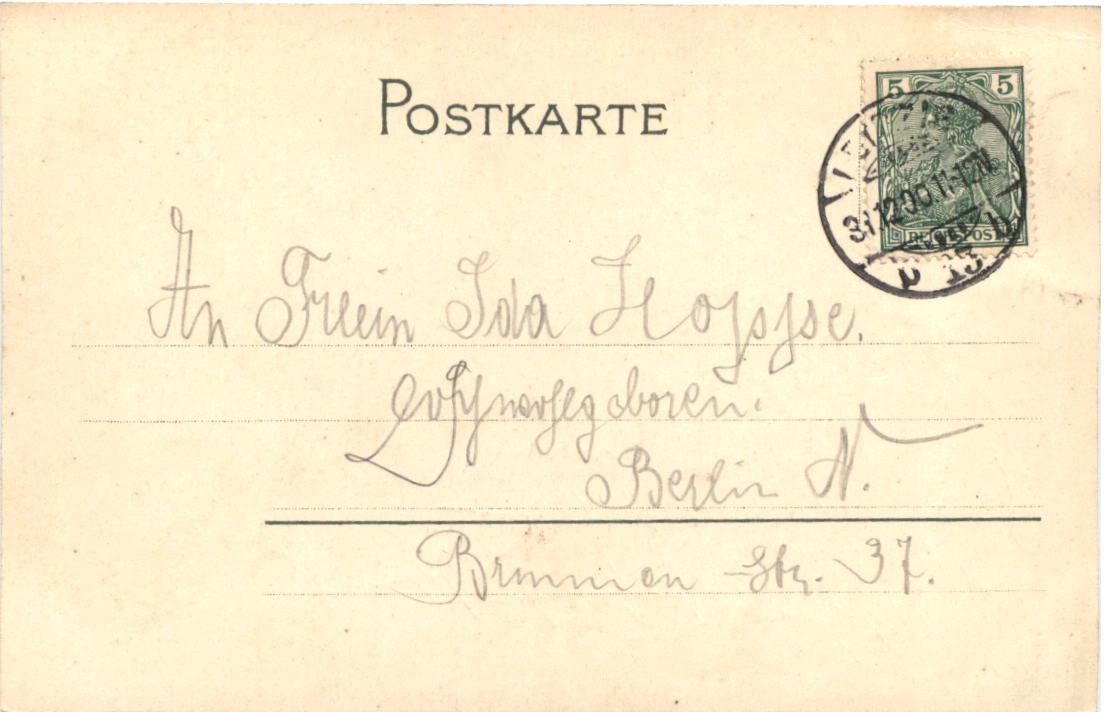 POSTKARTE
5 5
LEIPZIG
31.12.00.11-12N.
REICHSPOST
13
An Frlein Ida Hoppe.
Hochwohlgeboren.
Berlin N.
Brunnen Str. 37.